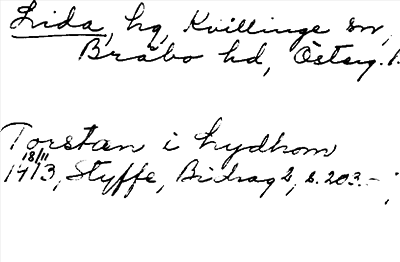 Lida, hg, Kvillinge sn,
Bråbo hd, Österg. l.
Torstan i Lydhom
18/11
1413, Styffe, Bidrag 2, s. 203.-;